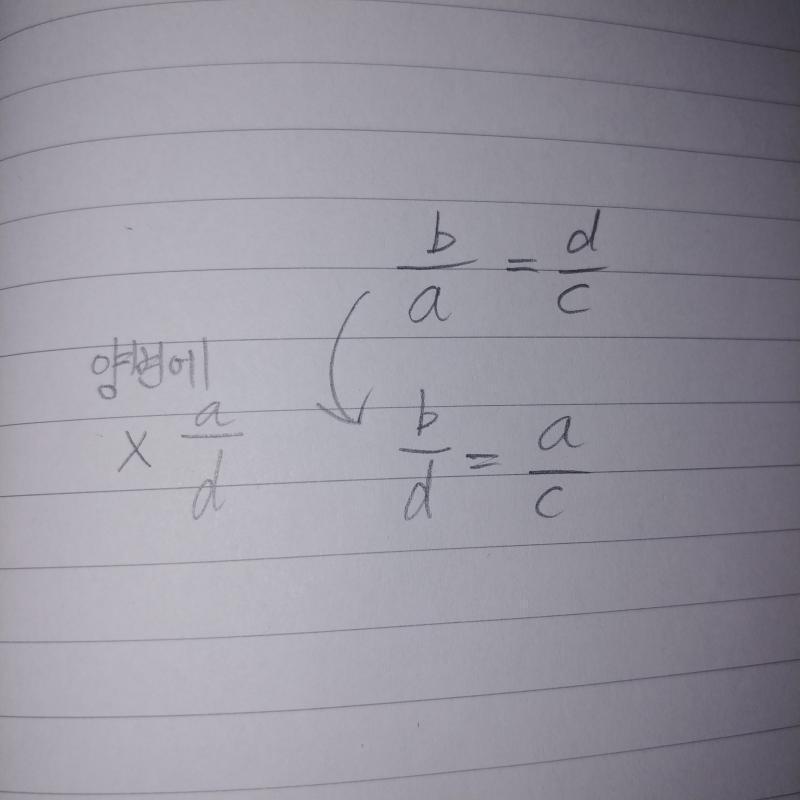 b/a = d/c
양변에
× a/d
b/d = a/c